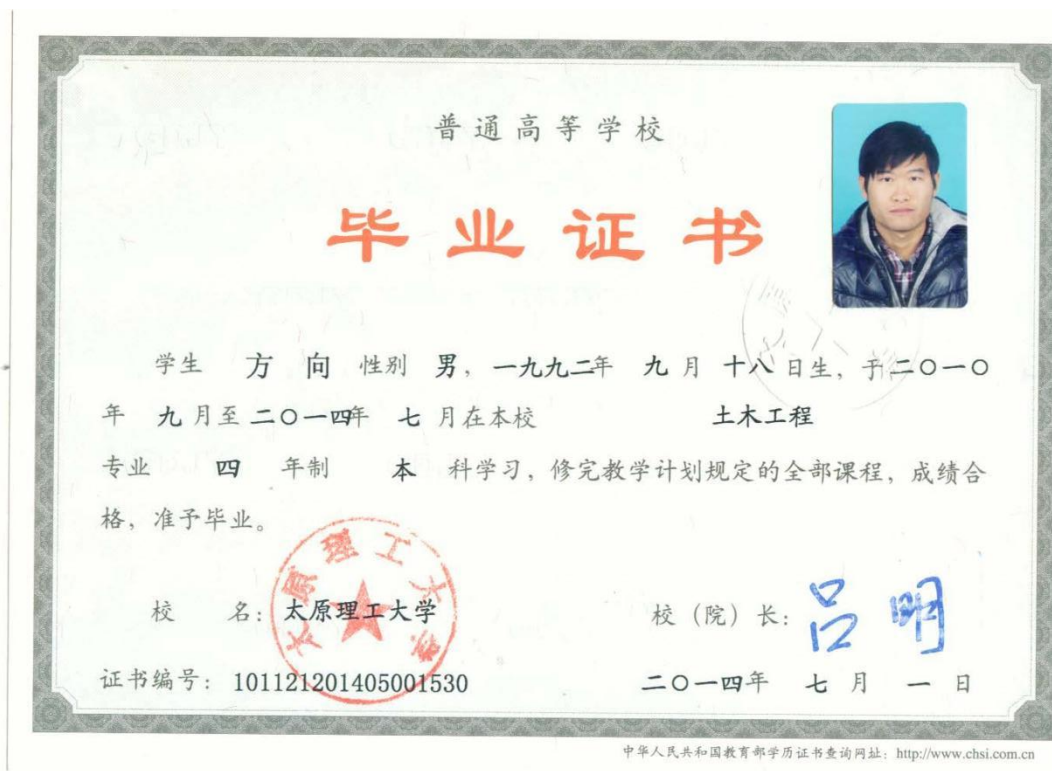 普通高等学校
毕业证书
学生 方向 性别 男，一九九二年 九月 十八日生，于二〇一〇
年 九月至二〇一四年 七月在本校 土木工程
专业 四 年制 本 科学习，修完教学计划规定的全部课程，成绩合
格，准予毕业。
太原理工大学
校 名：太原理工大学 校（院）长：吕明
证书编号：101121201405001530 二〇一四年 七月 一日
中华人民共和国教育部学历证书查询网址：http://www.chsi.com.cn